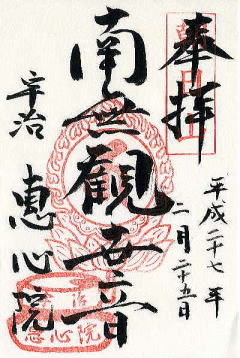 奉拝
朝日山
平成二十七年
二月二十五日
南無觀世音
宇治 恵心院
宇治
恵心院